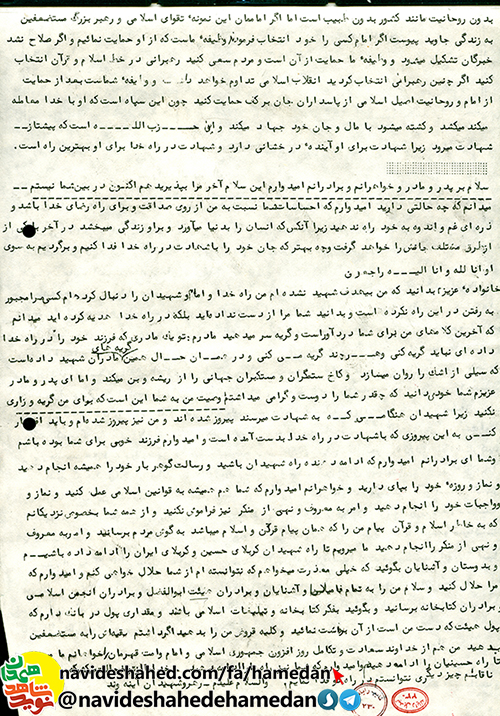 بدون روحانیت مانند کشور بدون طبیب است اما اگر امامان این نمونه تقوای اسلامی و رهبر بزرگ مستضعفین
به زندگی جاوید پیوست اگر امام کسی را خود انتخاب فرمود وظیفه ماست که از او حمایت نمائیم و اگر صلاح نشد
خبرگان تشکیل میشود و وظیفه ما حمایت از آن است و مردم سعی کنید رهبرانی در خط اسلام و قرآن انتخاب
کنید اگر چنین رهبرانی انتخاب کردید انقلاب اسلامی تداوم خواهد داشت و وظیفه شماست بعد از حمایت
از امام و روحانیت اصیل اسلامی از پاسداران جان بر کف حمایت کنید چون این سپاه است که او با خدا معامله
میکند میکشد و کشته میشود با مال و جان خود جهاد میکند و این حزب الله است که پیشتاز
شهادت میرود زیرا شهادت برای او آینده درخشانی دارد و شهادت در راه خدا برای او بهترین راه است.
سلام بر پدر و مادر و خواهرانم و برادرانم امیدوارم این سلام آخر مرا بپذیرید هم اکنون در بین شما نیستم
میدانم که چه حالتی دارید امیدوارم که احساسات شما نسبت به من از روی صداقت و برای راه رضای خدا باشد و
ذره ای غم و اندوه به خود راه ندهید زیرا آنکس که انسان را بدنیا میآورد و براو زندگی میبخشد در آخر با یکی از
طرق مختلف جانش را خواهد گرفت وچه بهتر که جان خود را باشهادت در راه خدا فدا کنیم و برگردیم به سوی
او انا لله و انا الیه راجعون
خانواده عزیزم بدانید که من بیهدف شهید نشده ام من راه خدا و امام و شهیدان را دنبال کرده ام کسی مرا مجبور
به رفتن در این راه نکرده است و بدانید شما مرا از دست نداده اید بلکه در راه خدا هدیه کرده اید میدانم
که آخرین کلامهای من برای شما دردآور است و گریه سر میدهید مادرم: تو یک مادری که فرزند خود را در راه خدا
داده ای نباید گریه کنی وهرچند گریه می کنی و در همان حال همین گریه های مادران شهید داده است
که سیلی از اشک را روان میسازد و کاخ ستمگران و مستکبران جهانی را از ریشه و بن میکند و اما ای پدر و مادر
عزیزم شما خود میدانید که چقدر شما را دوست و گرامی میداشتم وصیت من به شما این است که برای من گریه و زاری
نکنید زیرا شهیدان هنگامی که به شهادت میرسند پیروز شده اند و من نیز پیروز شده ام و باید افتخار
کنی به این پیروزی که باشهادت در راه خدا بدست آمده است و امیدوارم فرزند خوبی برای شما بوده باشم
وشما ای برادرانم امیدوارم که ادامه دهنده راه شهیدان باشید و رسالت گوهربار خود را همیشه انجام دهید
و نماز و روزه خود را بپای دارید و خواهرانم امیدوارم که شما هم همیشه به قوانین اسلامی عمل کنید و نماز و
واجبات خود را انجام دهید و امر به معروف و نهی از منکر نیز فراموش نکنید و از همه شما بخصوص نزدیکانم
که به خاطر اسلام و قرآن پیام من را که همان پیام قرآن و اسلام میباشد به گوش مردم برسانید و امر به معروف
و نهی از منکر را انجام دهید ما میرویم تا راه شهیدان کربلای حسین و کربلای ایران را ادامه داده باشیم
و بدوستان و آشنایان بگوئید که خیلی معذرت میخواهم که نتوانسته ام از شما حلال خواهی کنم و امیدوارم که
مرا حلال کنید و سلام من را به تمام فامیلان و آشنایان و برادران هیئت ابوالفضل و برادران انجمن اسلامی
برادران کتابخانه برسانید و بگوئید بفکر کتابخانه و تبلیغات اسلامی باشند و مقداری پول در بانک دارم که
پول هیئت که دست من است از آن برداشت نمائید و کلیه قروض من را بدهید اگر داشتم بقیه ای را به مستضعفین
بدهید من هم از خداوند سعادت و تکامل روز افزون جمهوری اسلامی و امام و امت قهرمان خواهانم
تا راه حسینیان را ادامه دهید
navideshahed.com/fa/hamedan
@navideshahedehamedan
نوید شاهد
همدان